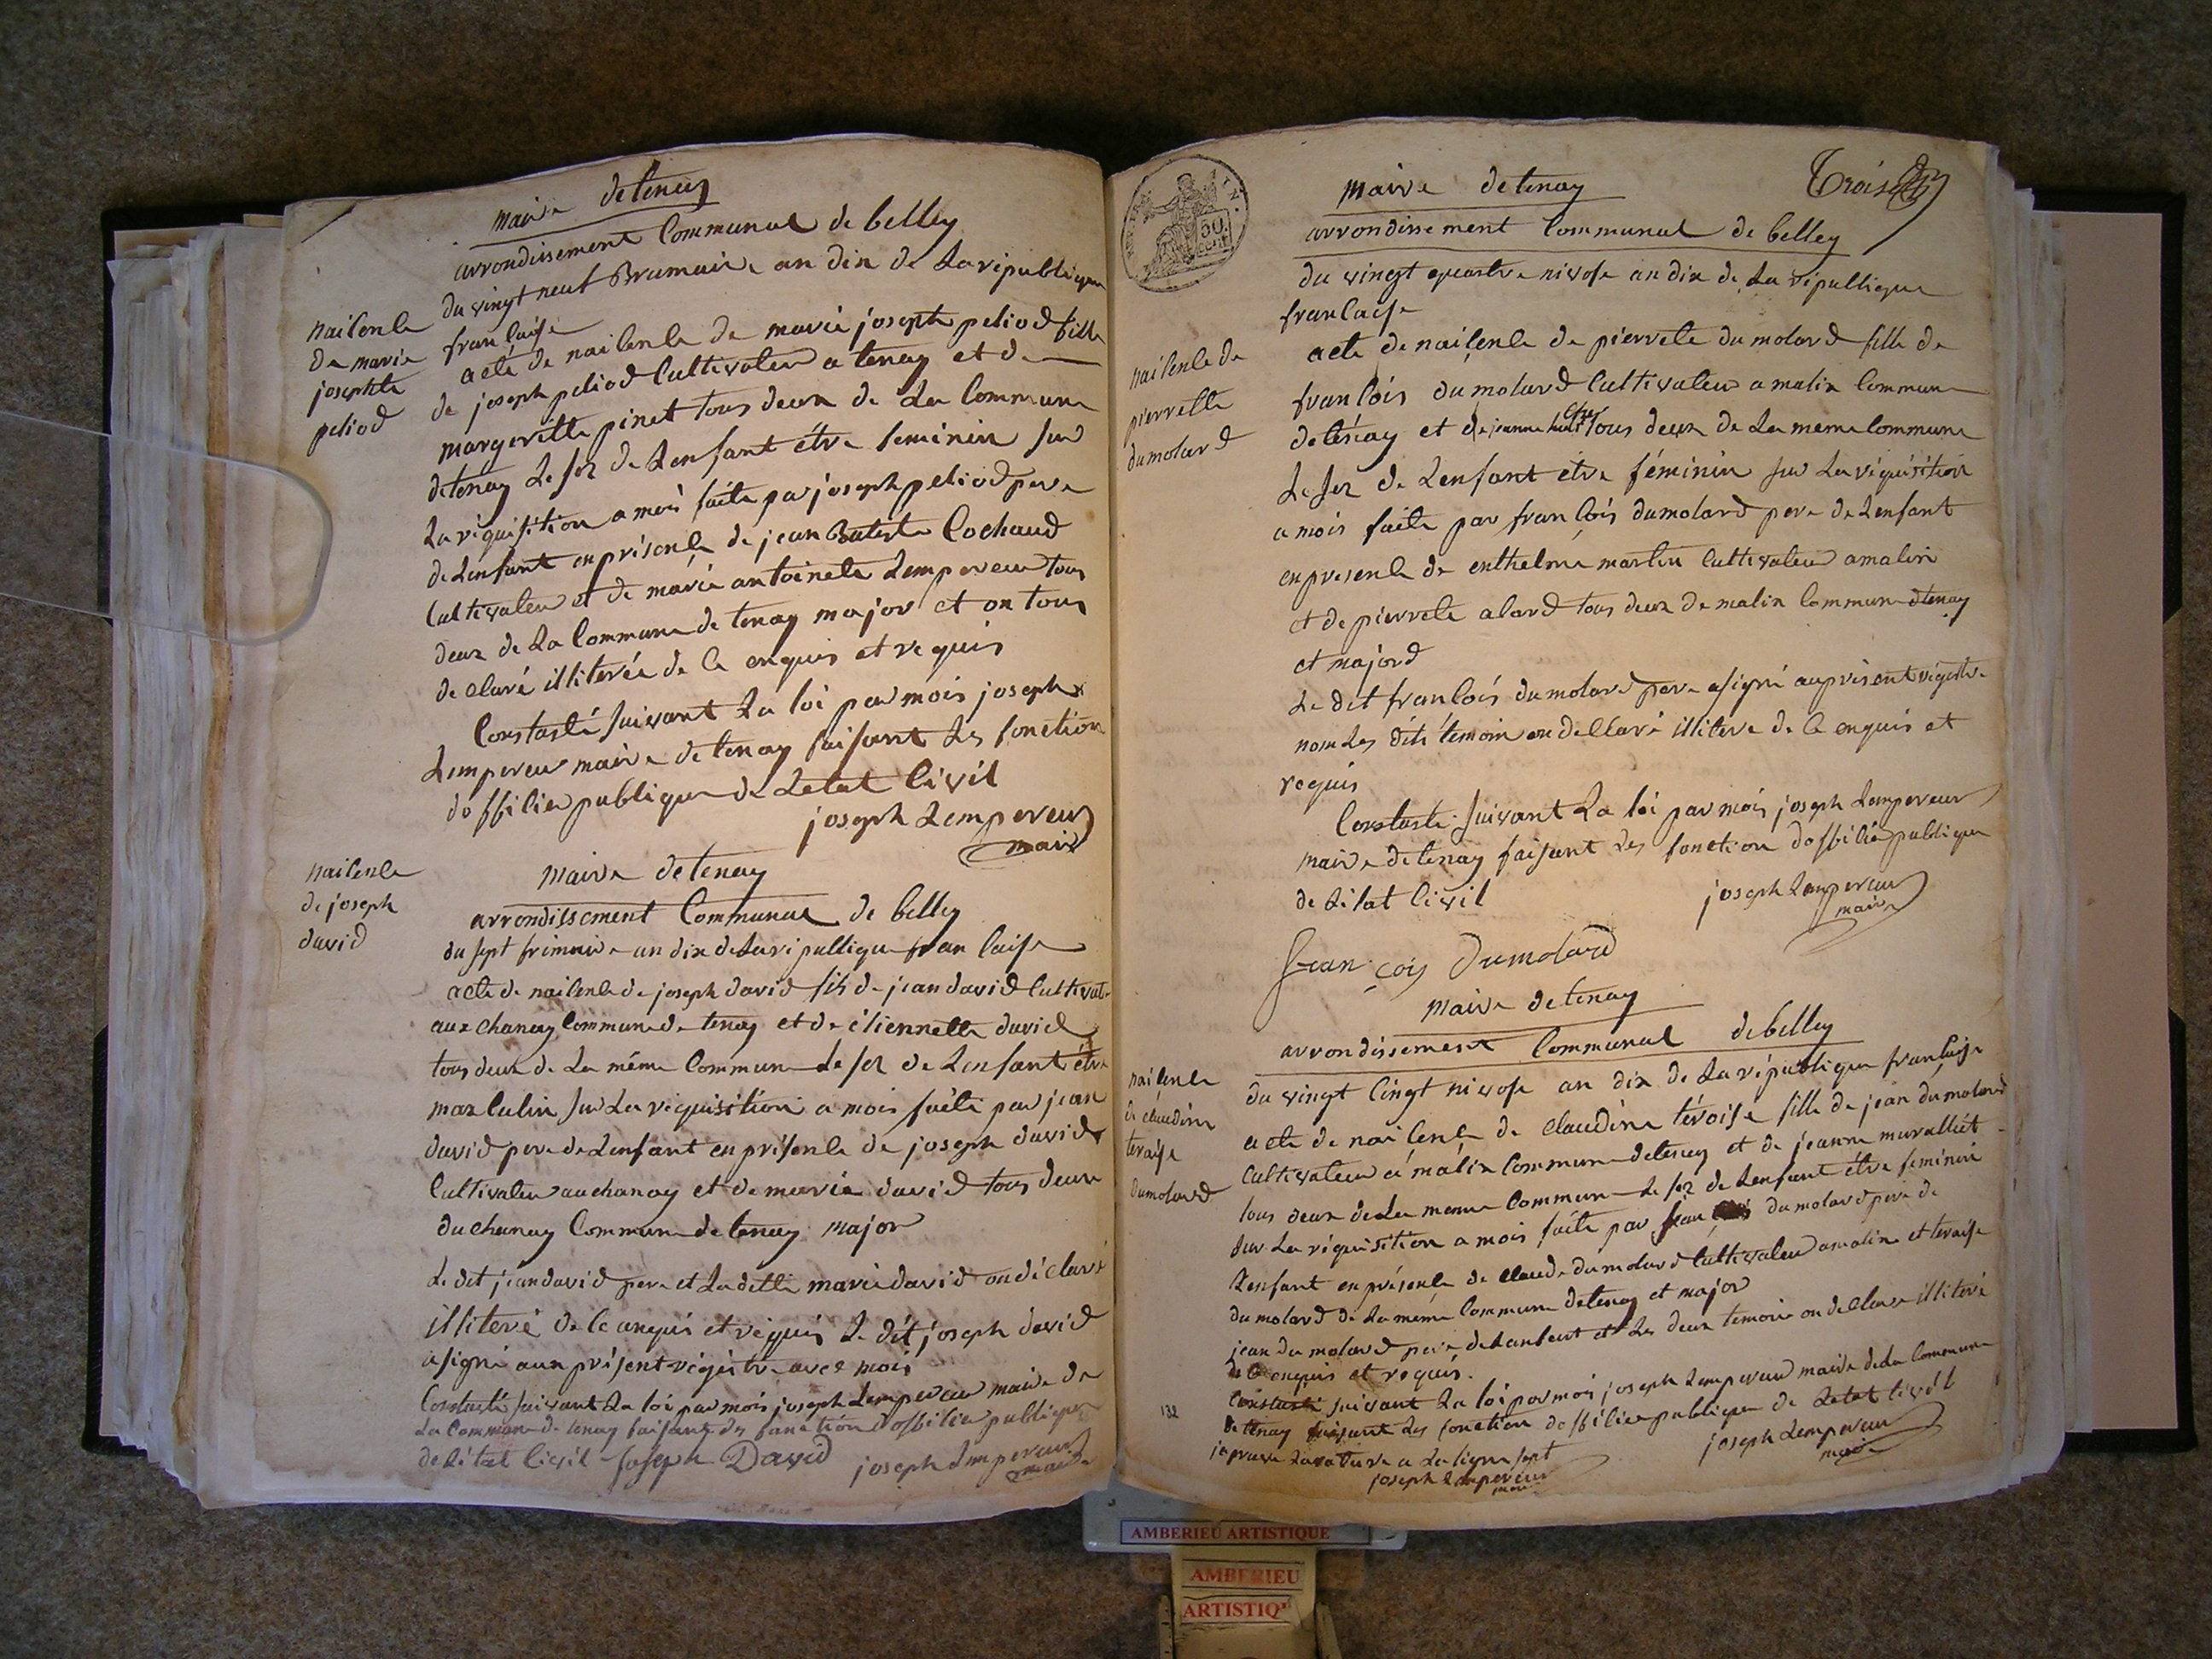 maire de tenay
arrondissement Communal de belley
du vingt neuf Brumaire an dix de La république
francaise
naisence
de marie
josephte
peliod
acte de naisence de marie joseph peliod fille
de joseph peliod Cultivateur a tenay et de
margerite pinet tous deux de La Commune
de tenay Le sex de Lenfant étre feminin sur
La réquisition a moi faite par joseph peliod pere
de Lenfant en présence de jean Batiste Cochaud
Cultivateur et de marie antoinete Lempereur tous
deux de La Commune de tenay major et on tous
declaré illiterée de Ce enquis et requis
Constasté suivant La loi par mois joseph
Lempereur maire de tenay faisant Les fonction
dofficier publique de Letat Civil
joseph Lempereur
maire
naisence
de joseph
david
maire de tenay
arrondissement Communal de belley
du sept frimaire an dix de La republique francaise
acte de naisence de joseph david fils de jean david Cultivat
aux chanay Commune de tenay et de étiennette david
tous deux de La même Commune Le sex de Lenfant étre
masculin sur La réquisition a mois faite par jean
david pere de Lenfant en présence de joseph david
Cultivateur au chanay et de marie david tous deux
du chanay Commune de tenay major
Le dit jean david pere et La ditte marie david on déclaré
illiteré de Ce enquis et réquis Le dit joseph david
a signé aux présent régistre avec mois
Constasté suivant La loi par mois joseph Lempereur maire de
La Commune de tenay faisant des fonction dofficier publique
de Létat Civil Joseph David joseph Lempereur
maire
30
cent
maire de tenay
Trois
arrondissement Communal de belley
du vingt quatre nivose an dix de La république
francaise
naisence de
pierrette
dumolard
acte de naisence de pierrete dumolard fille de
francois dumolard Cultivateur a malix Commune
de tenay et de jeanne tous deux de La meme Commune
Le sex de Lenfant etre féminin sur La réquisition
a mois faite par francois dumolard pere de Lenfant
en presence de enthelme martin Cultivateur a malix
et de pierrete alard tous deux de malix Commune de tenay
et majord
Le dit francois dumolard pere a signé au présent régistre
nom Les dits témoin on declaré illitere de Ce enquis et
requis
Constasté suivant La loi par mois joseph Lempereur
maire de tenay faisant Les fonction dofficié publique
de Létat Civil
joseph Lempereur
maire
françois Dumolard
maire de tenay
arrondissement Communal de belley
naisence
de claudine
teraise
dumolard
du vingt Cingt nivose an dix de La république francaise
acte de naisence de claudine téroise fille de jean dumolard
Cultivateur a malix Commune de tenay et de jeanne muralliet
tous deux de La meme Commune Le sex de Lenfant étre feminin
sur La réquisition a mois faite par jean dumolard pere de
Lenfant en présence de claude dumolard Cultivateur a malix et teraise
dumolard de La même Commune de tenay et major
jean dumolard pere de Lenfant et Les deux temoin on declaré illiteré
de Ce enquis et requis.
Constasté suivant La loi par mois joseph Lempereur maire de La Commune
de tenay faisant Les fonction dofficier publique de Letat Civil
joseph Lempereur
maire
japrouve La rature a La ligne sept
joseph Lempereur
maire
132
AMBERIEU ARTISTIQUE
AMBERIEU
ARTISTIQ